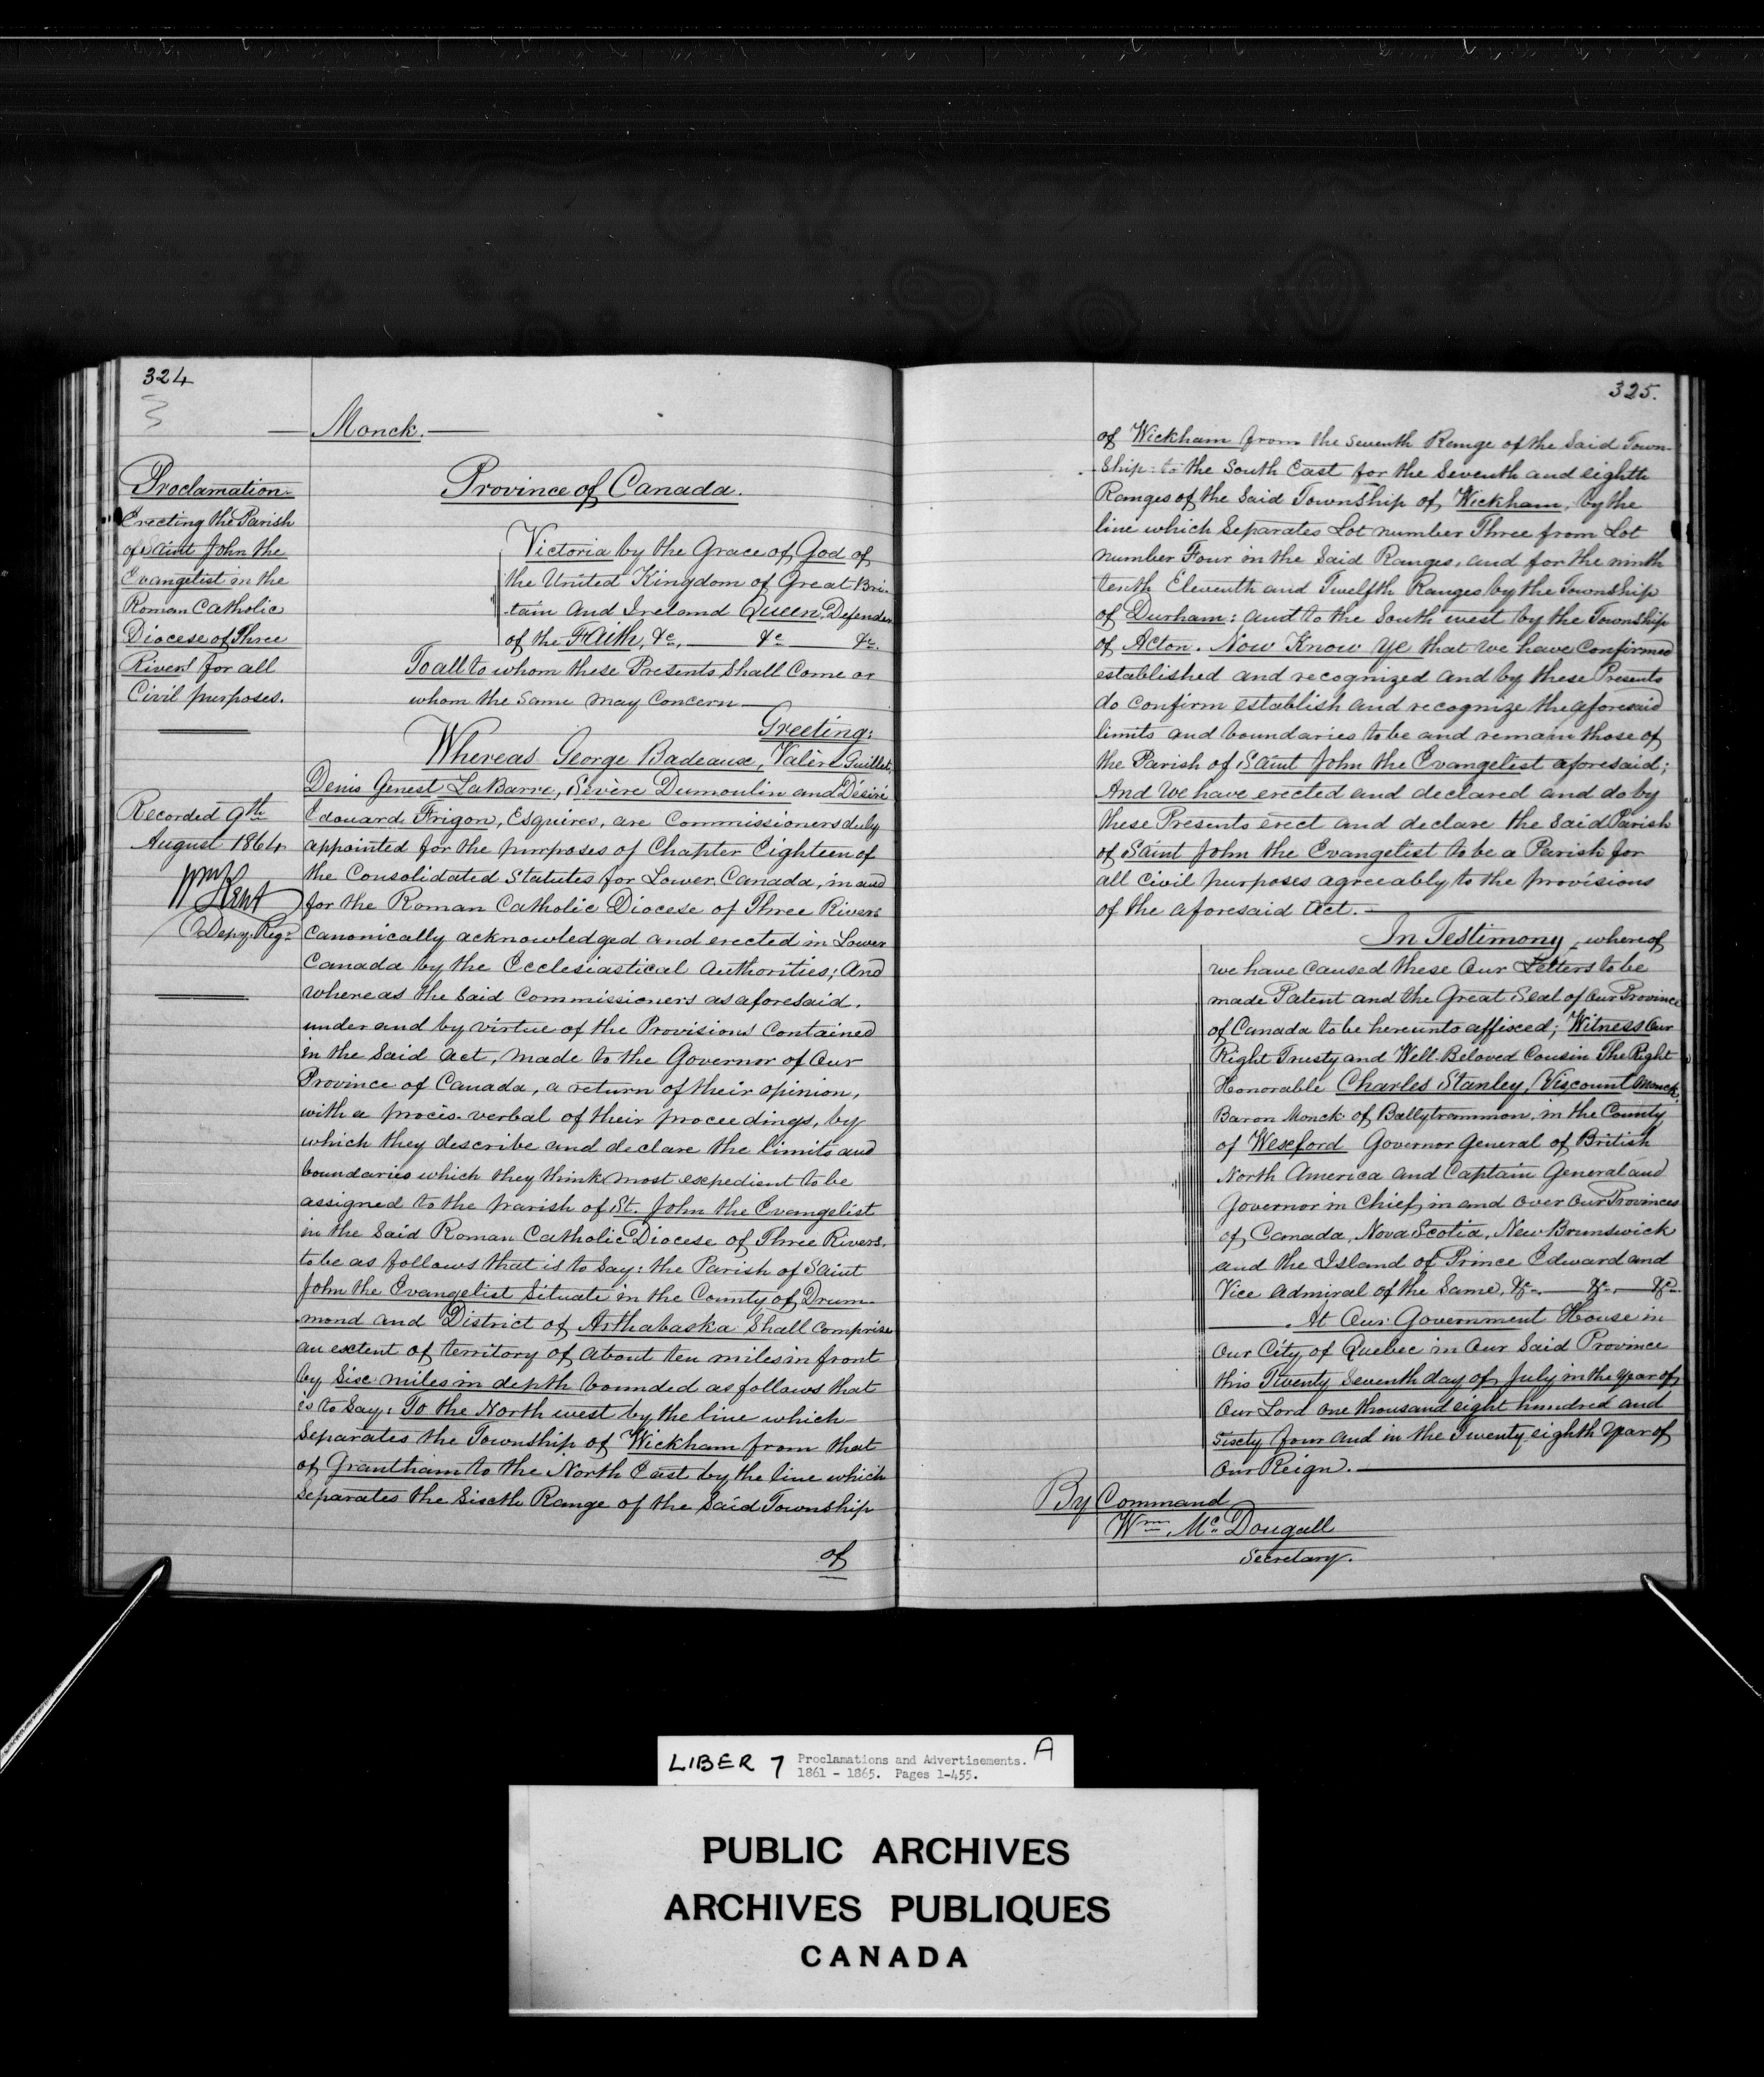 324
Monck.
Proclamation
Erecting the Parish
of Saint John the
Evangelist in the
Roman Catholic
Diocese of Three
Rivers for all
Civil purposes.
Recorded 9th
August 1864
Wm Kent
Depy. Regr
Province of Canada.
Victoria by the Grace of God of
the United Kingdom of Great Bri-
-tain and Ireland Queen, Defender
of the Faith, &c. &c &c.
To all to whom these Presents shall Come or
whom the same may Concern
Greeting:
Whereas George Badeaux, Valère Guillet,
Denis Genest LaBarre, Sévère Dumoulin and Désiré
Edouard Frigon, Esquires, are Commissioners duly
appointed for the purposes of Chapter Eighteen of
the Consolidated Statutes for Lower Canada, in and
for the Roman Catholic Diocese of Three Rivers
Canonically acknowledged and erected in Lower
Canada by the Ecclesiastical Authorities; And
whereas the said Commissioners as aforesaid.
under and by virtue of the Provisions Contained
in the said Act, made to the Governor of Our
Province of Canada, a return of their opinion,
with a procès-verbal of their proceedings, by
which they describe and declare the limits and
boundaries which they think most expedient to be
assigned to the parish of St. John the Evangelist
in the Said Roman Catholic Diocese of Three Rivers.
to be as follows that is to Say: the Parish of Saint
John the Evangelist Situate in the County of Drum-
mond and District of Arthabaska Shall comprise
an extent of territory of about ten miles in front
by Six miles in depth bounded as follows that
is to Say: To the North west by the line which
Separates the Township of Wickham from that
of Grantham to the North East by the line which
separates the Sixth Range of the Said Township
of
325.
of Wickham from the seventh Range of the Said Town-
-ship: to the South East for the Seventh and eighth
Ranges of the Said Township of Wickham, by the
line which Separates Lot number Three from Lot
number Four in the Said Ranges, and for the ninth
tenth Eleventh and Twelfth Ranges by the Township
of Durham: and to the South west by the Township
of Acton. Now Know Ye that we have Confirmed
established and recognized and by these Presents
do confirm establish and recognize the aforesaid
limits and boundaries to be and remain those of
the Parish of Saint John the Evangelist aforesaid;
And We have erected and declared and do by
these Presents erect and declare the Said Parish
of Saint John the Evangelist to be a Parish for
all Civil purposes agreeably to the provisions
of the aforesaid Act.
In Testimony whereof
we have caused these Our Letters to be
made Patent and the Great Seal of Our Province
of Canada to be hereunto affixed; Witness Our
Right Trusty and Well-Beloved Cousin The Right
Honorable Charles Stanley, Viscount Monck,
Baron Monck of Ballytrammon, in the County
of Wexford Governor General of British
North America and Captain General and
Governor in Chief in and over Our Provinces
of Canada, Nova Scotia, New Brunswick
and the Island of Prince Edward and
Vice Admiral of the Same, &c. &c. &c.
At Our Government House in
Our City of Quebec in Our Said Province
this Twenty Seventh day of July in the year of
Our Lord one thousand eight hundred and
Sixty four and in the Twenty eighth Year of
Our Reign.
By Command
Wm. Mc.Dougall
Secretary.
LIBER 7 Proclamations and Advertisements. A
1861 - 1865. Pages 1-455.
PUBLIC ARCHIVES
ARCHIVES PUBLIQUES
CANADA